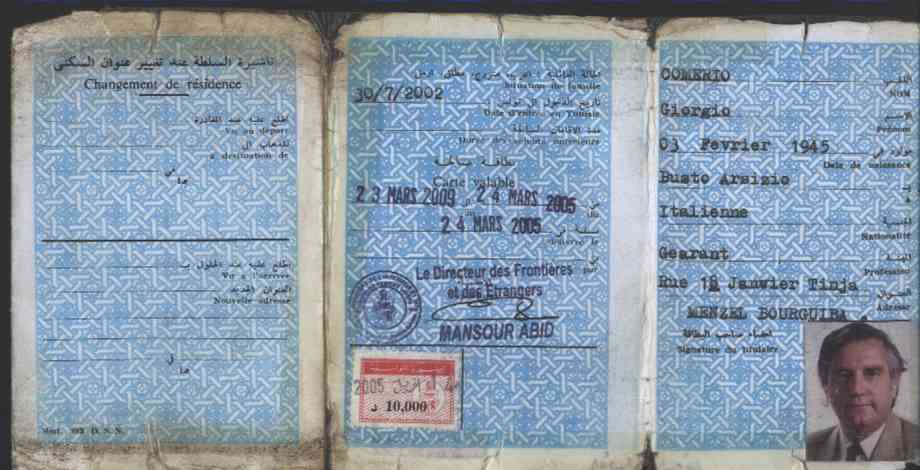 تأشيرة السلطة عند تغيير عنوان السكنى
Changement de résidence
اطلع عليه عند المغادرة
Vu au départ
للذهاب الى
à destination de
في
اطلع عليه عند الحلول بـ
Vu à l'arrivée
العنوان الجديد
Nouvelle adresse
في
Mod. D. S. N.
الحالة العائلية :
Situation de famille
30/7/2002
تاريخ الدخول الى تونس
Date d'entrée en Tunisie
مدة الاقامات السابقة
Durée des séjours antérieurs
بطاقة صالحة
Carte valable
23 MARS 2009
24 MARS 2005
24 MARS 2005
délivrée le
par
Le Directeur des Frontières
et des Etrangers
MANSOUR ABID
2005
10,000 د
COMERIO
اللقب
Nom
Giorgio
الاسم
Prénom
03 Fevrier 1945
مولود في
Date de naissance
Busto Arsizio
à
Italienne
الجنسية
Nationalité
Gearant
المهنة
Profession
Rue 18 Janvier Tinja
العنوان
Adresse
MENZEL BOURGUIBA.
امضاء صاحب البطاقة
Signature du titulaire